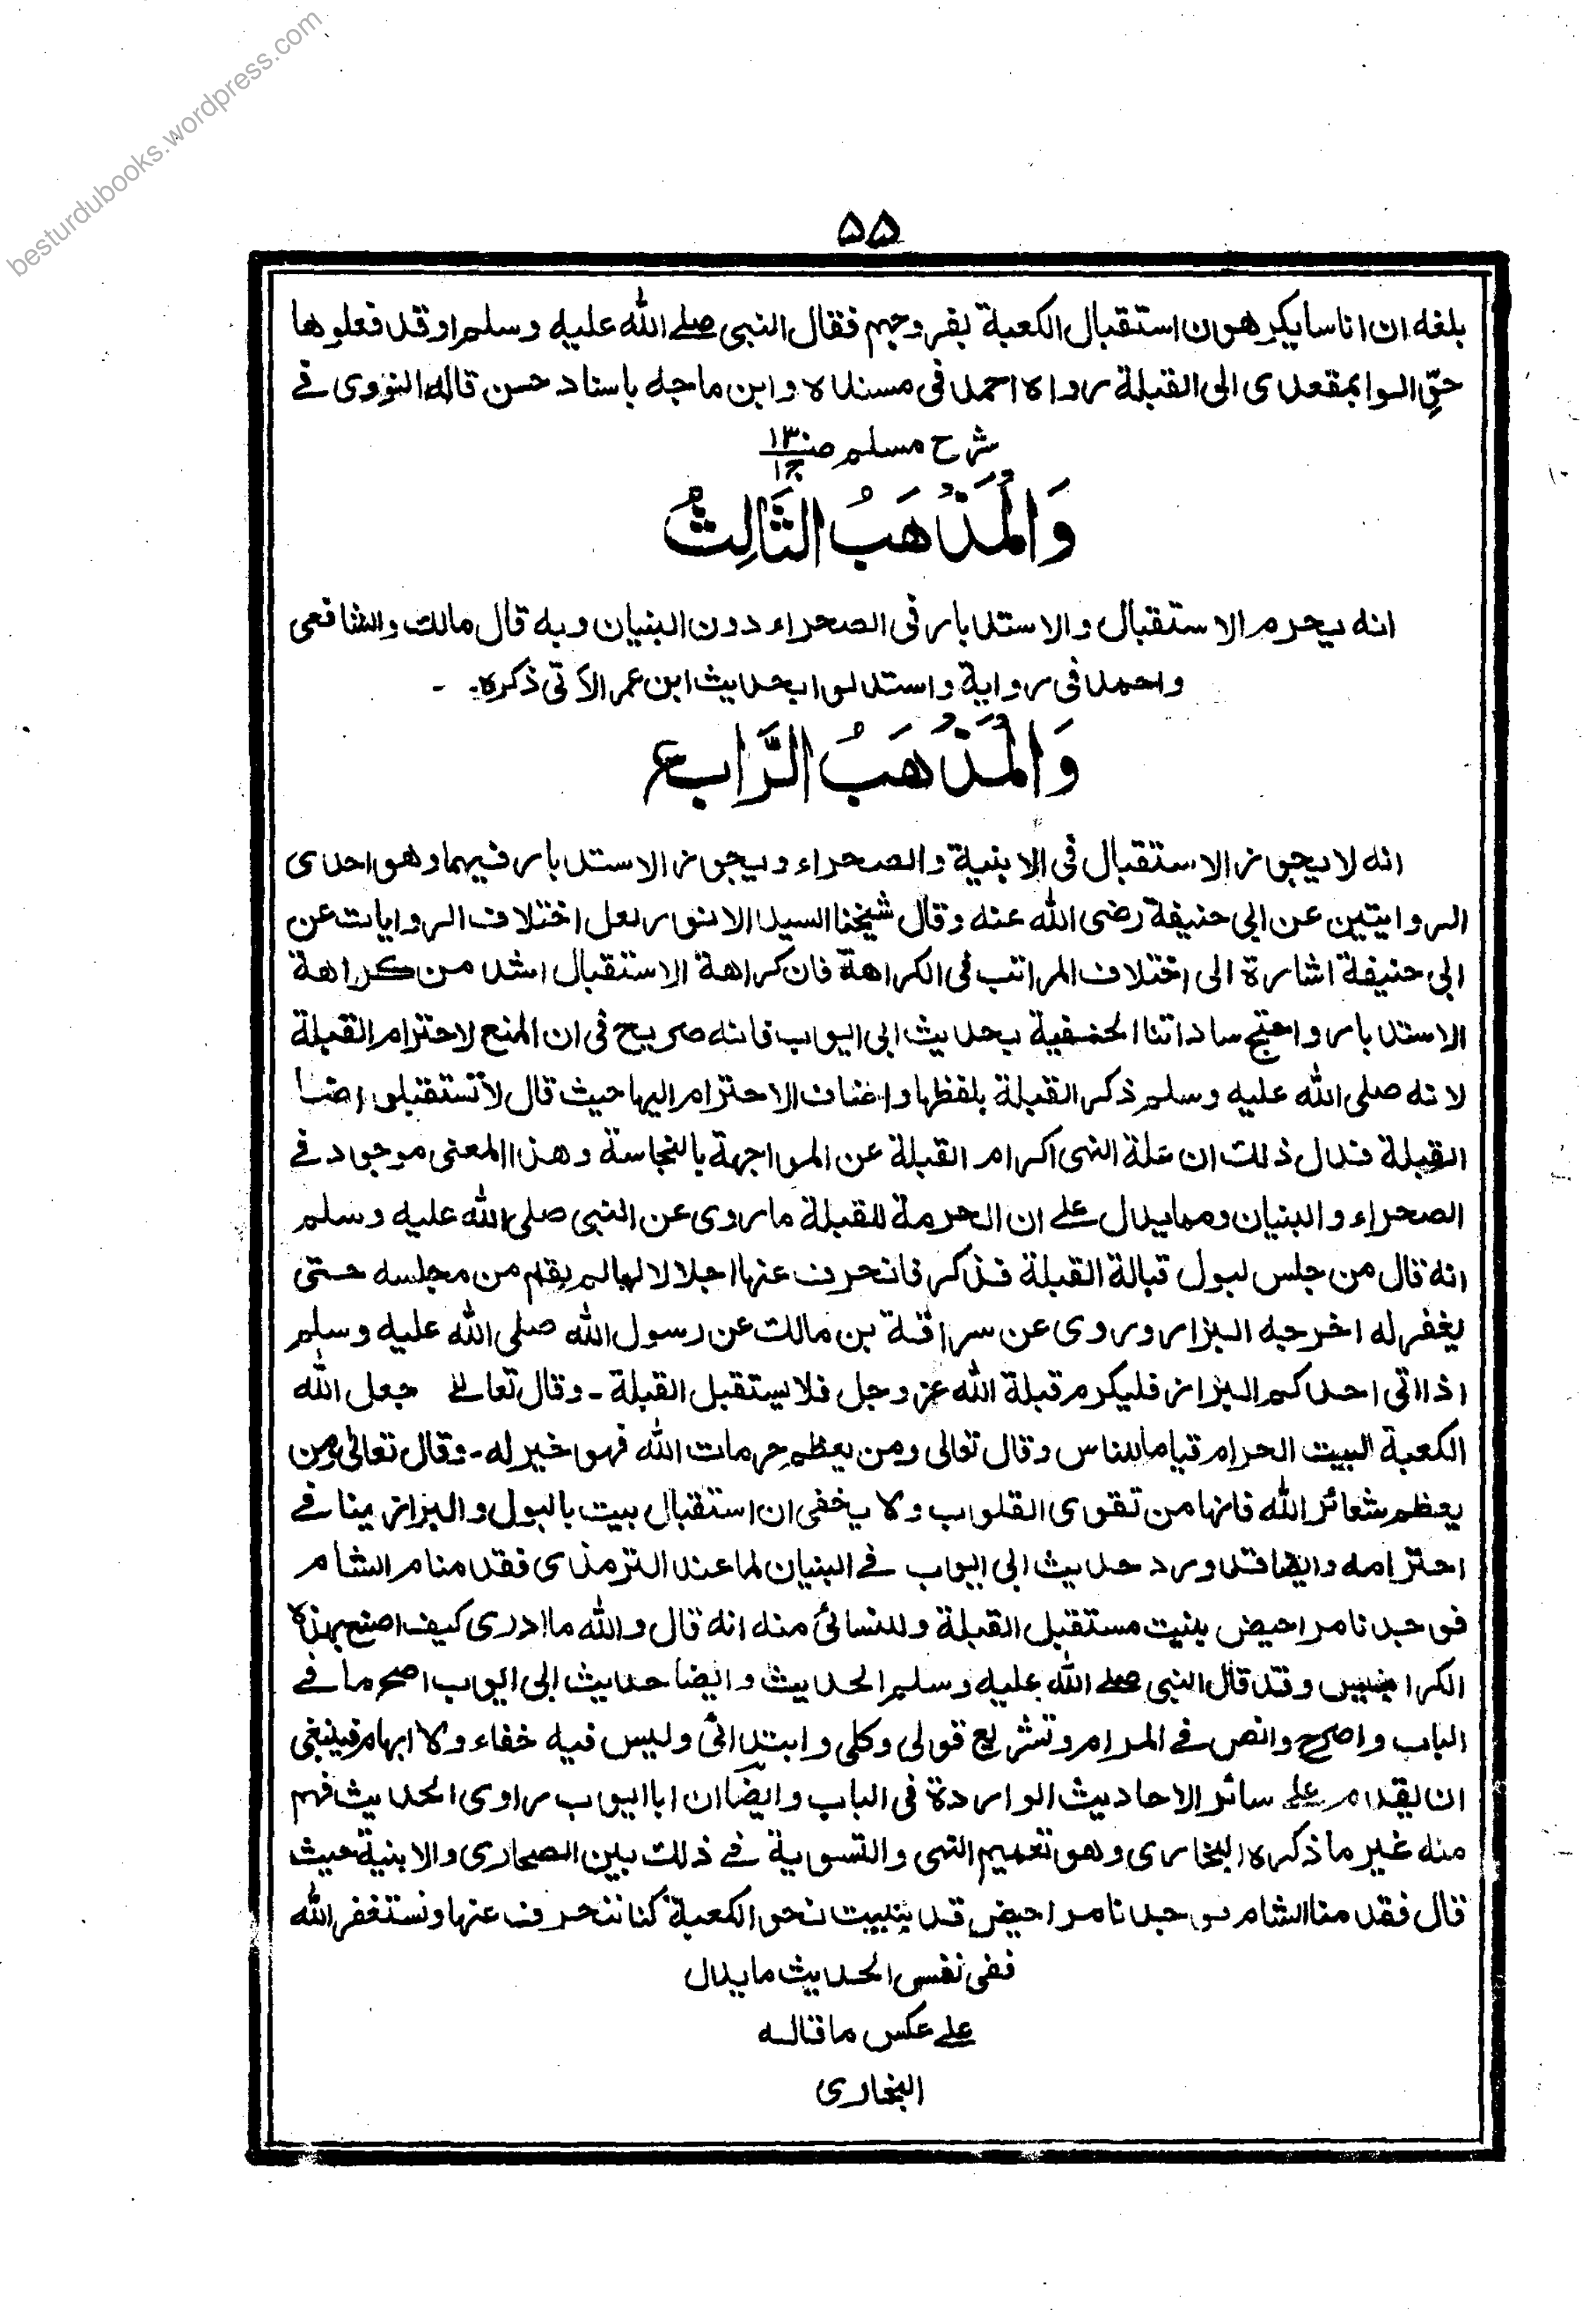 besturdubooks.wordpress.com
۵۵
بلغه ان اناسا يكرهون استقبال الكعبة بفروجهم فقال النبي صلے الله عليه وسلم اوقد فعلوها
حوّلوا بمقعدى الى القبلة رواه احمد فى مسنده وابن ماجه باسناد حسن قاله النووى فے
شرح مسلم صـ ١٣٠ ج١
وَالْمَذْهَبُ الثَّالِثُ
انه يحرم الاستقبال والاستدبار فى الصحراء دون البنيان وبه قال مالك والشافعى
واحمد فى رواية واستدلوا بحديث ابن عمر الآتى ذكره۔
وَالْمَذْهَبُ الرَّابِع
انه لا يجوز الاستقبال فى الابنية والصحراء ويجوز الاستدبار فيهما وهو احدى
الروايتين عن ابى حنيفة رضى الله عنه وقال شيخنا السيد الانور لعل اختلاف الروايات عن
ابى حنيفة اشارة الى اختلاف المراتب فى الكراهة فان كراهة الاستقبال اشد من كراهة
الاستدبار واحتج ساداتنا الحنفية بحديث ابى ايوب فانه صريح فى ان المنع لاحترام القبلة
لانه صلى الله عليه وسلم ذكر القبلة بلفظها واضاف الاحترام اليها حيث قال لا تستقبلوا
القبلة فدل ذلك ان علة النهى اكرام القبلة عن المواجهة بالنجاسة وهذا المعنى موجود فے
الصحراء والبنيان ومما يدل علے ان الحرمة للقبلة ما روى عن النبى صلى الله عليه وسلم
انه قال من جلس لبول قبالة القبلة فذكر فانحرف عنها اجلالا لها لم يقم من مجلسه حتى
يغفر له اخرجه البزار وروى عن سراقة بن مالك عن رسول الله صلى الله عليه وسلم
اذا اتى احدكم البراز فليكرم قبلة الله عز وجل فلا يستقبل القبلة۔ وقال تعالے جعل الله
الكعبة البيت الحرام قياما للناس وقال تعالى ومن يعظم حرمات الله فهو خير له۔ وقال تعالى ومن
يعظم شعائر الله فانها من تقوى القلوب ولا يخفى ان استقبال بيت بالبول والبراز ينا فے
احترامه وايضا قد ورد حديث ابى ايوب فے البنيان لما عند الترمذى فقدمنا م الشام
فوجدنا مراحيض بنيت مستقبل القبلة وللنسائى منه انه قال والله ما ادرى كيف اصنع بهذه
الكراييس وقد قال النبى صلے الله عليه وسلم الحديث وايضا حديث ابى ايوب اصح ما فے
الباب واصرح وانص فے المرام وتشريع قولى وكلى وابتدائى وليس فيه خفاء ولا ابهام فينبغى
ان يقدم علے سائر الاحاديث الواردة فى الباب وايضًا ان ابا ايوب راوى الحديث فهم
منه غير ما ذكره البخارى وهو تعميم النهى والتسوية فے ذلك بين الصحارى والابنية حيث
قال فقدمنا الشام فوجدنا مراحيض قد بنيت نحو الكعبة كنا ننحرف عنها ونستغفر الله
ففى نفس الحديث ما يدل
علے عكس ما قاله
البخارى